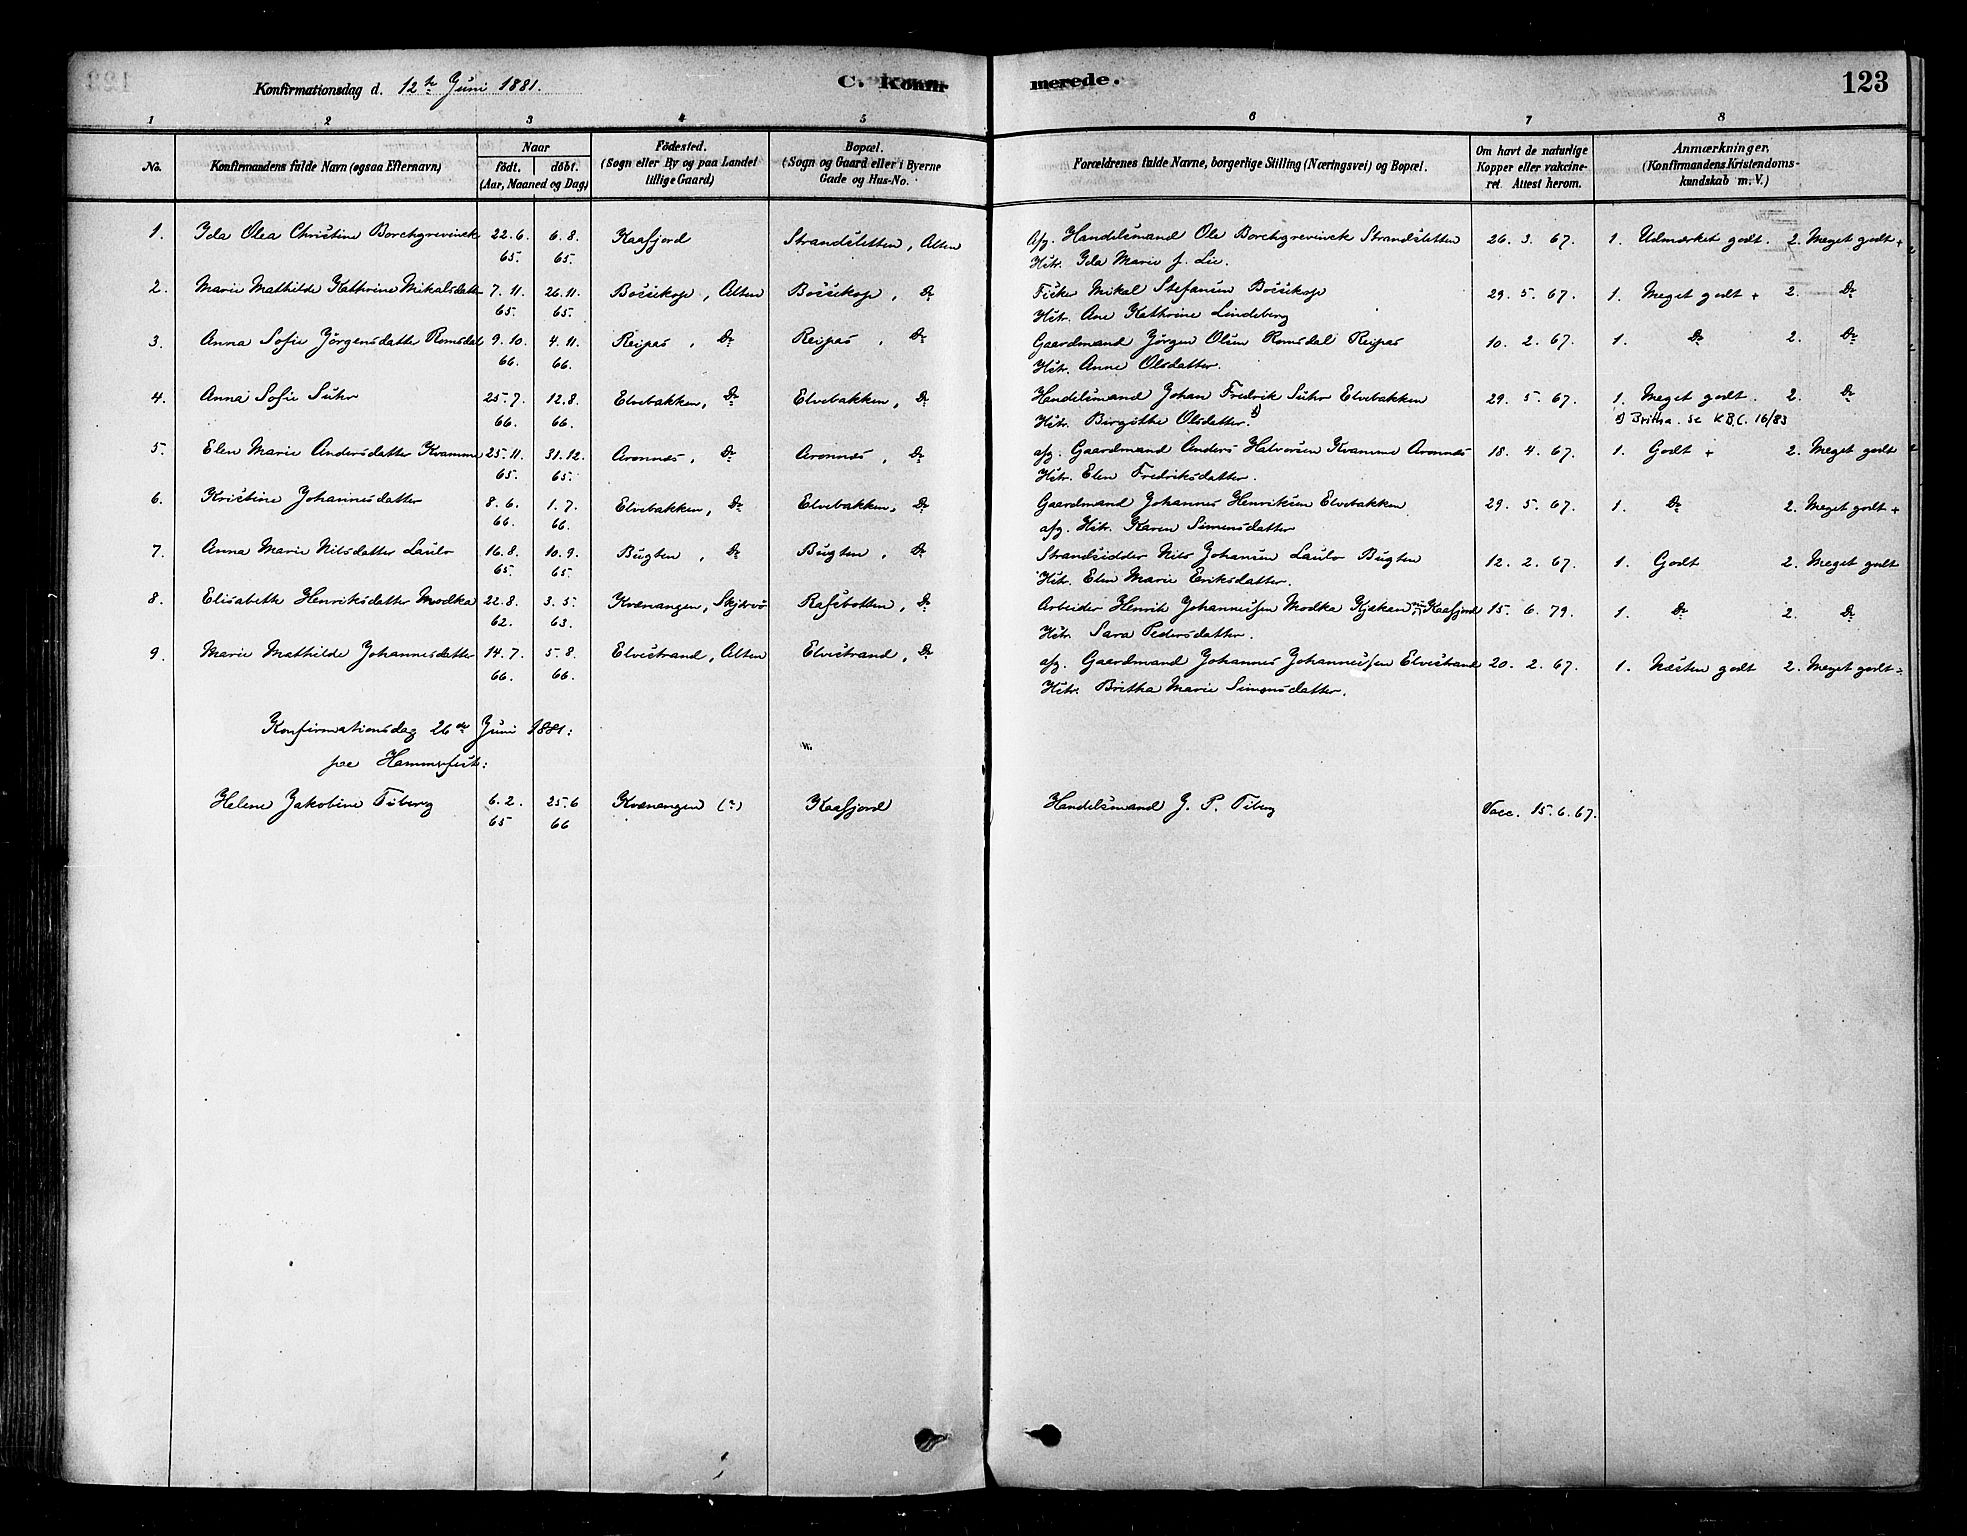 Konfirmationsdag d. 12te Juni 1881. C. Konfirmerede. 123
1 2 3 4 5 6 7 8
No. Konfirmandens fulde Navn (ogsaa Efternavn). Naar födt. döbt. (Aar, Maaned og Dag) Födested. (Sogn eller By og paa Landet tillige Gaard) Bopæl. (Sogn og Gaard eller i Byerne Gade og Hus-No. Forældrenes fulde Navne, borgerlige Stilling (Næringsvei) og Bopæl. Om havt de naturlige Kopper eller vakcineret. Attest herom. Anmærkninger, (Konfirmandens Kristendomskundskab m. V.)
1. Ida Olea Christine Borchgrevinck 22.6. 6.8. Kaafjord Strandsletten, Alten Afg. Handelsmand Ole Borchgrevinck Strandsletten 26. 3. 67. 1. Udmærket godt. 2. Meget godt +
65. 65. Hstr. Ida Marie f. Lie.
2. Marie Mathilde Kathrine Mikalsdatter 7.11. 26.11. Bossekop, Alten Bossekop, Do Fisker Mikal Stefansen Bossekop 29. 5. 67. 1. Meget godt + 2. Do
65. 65. Hstr. Ane Kathrine Lindeberg
3. Anna Sofie Jørgensdatter Romsdal 9.10. 4.11. Reipas, Do Reipas, Do Gaardmand Jørgen Olsen Romsdal Reipas 10. 2. 67. 1. Do 2. Do
66. 66. Hstr. Anne Olsdatter.
4. Anna Sofie Suhr 25.7. 12.8. Elvebakken, Do Elvebakken, Do Handelsmand Johan Fredrik Suhr Elvebakken 29. 5. 67. 1. Meget godt. 2. Do
66. 66. Hstr. Birgithe Olsdatter. Britha. se K.B.C. 16/83
5. Elen Marie Andersdatter Kvamme 25.11. 31.12. Aronnes, Do Aronnes, Do afg. Gaardmand Anders Halvorsen Kvamme Aronnes 18. 4. 67. 1. Godt + 2. Meget godt
65. 65. Hstr. Elen Fredriksdatter.
6. Kristine Johannesdatter 8.6. 1.7. Elvebakken, Do Elvebakken, Do Gaardmand Johannes Henriksen Elvebakken 29. 5. 67. 1. Do 2. Meget godt +
66. 66. afg. Hstr. Karen Simensdatter
7. Anna Marie Nilsdatter Laulo 16.8. 10.9. Bugten, Do Bugten, Do Strandsidder Nils Johansen Laulo Bugten 12. 2. 67. 1. Godt 2. Meget godt
65. 65. Hstr. Elen Marie Eriksdatter.
8. Elisabeth Henriksdatter Modka 22.8. 3.5. Kvænangen, Skjervø Rafsbotten, Do Arbeider Henrik Johannessen Modka Kjækan Kaafjord 15. 6. 79. 1. Do 2. Do
62. 63. Hstr. Sara Pedersdatter.
9. Marie Mathilde Johannesdatter 14.7. 5.8. Elvestrand, Alten Elvestrand, Do afg. Gaardmand Johannes Johannessen Elvestrand 20. 2. 67. 1. Næsten godt 2. Meget godt
66. 66. Hstr. Britha Marie Simonsdatter.
Konfirmationsdag 26de Juni 1881:
paa Hammerfest:
Helene Jakobine Fiberg 6.2. 25.6 Kvænangen (?) Kaafjord Handelsmand J. P. Fiberg Vacc. 15. 6. 67.
65 66